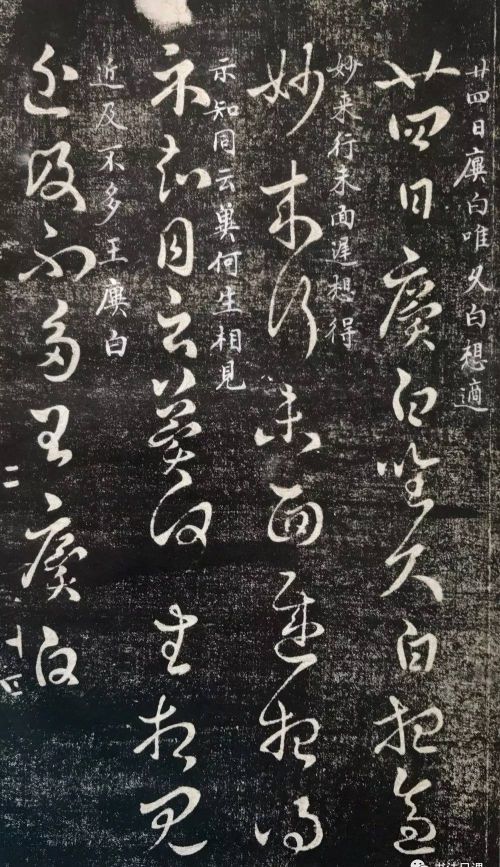 廿四日廙白唯久白想適
廿四日廙白唯久白想適
妙来行未面遲想得
妙来行未面遲想得
示知同云兾何生相見
示知同云兾何生相見
近及不多王廙白
近及不多王廙白
二